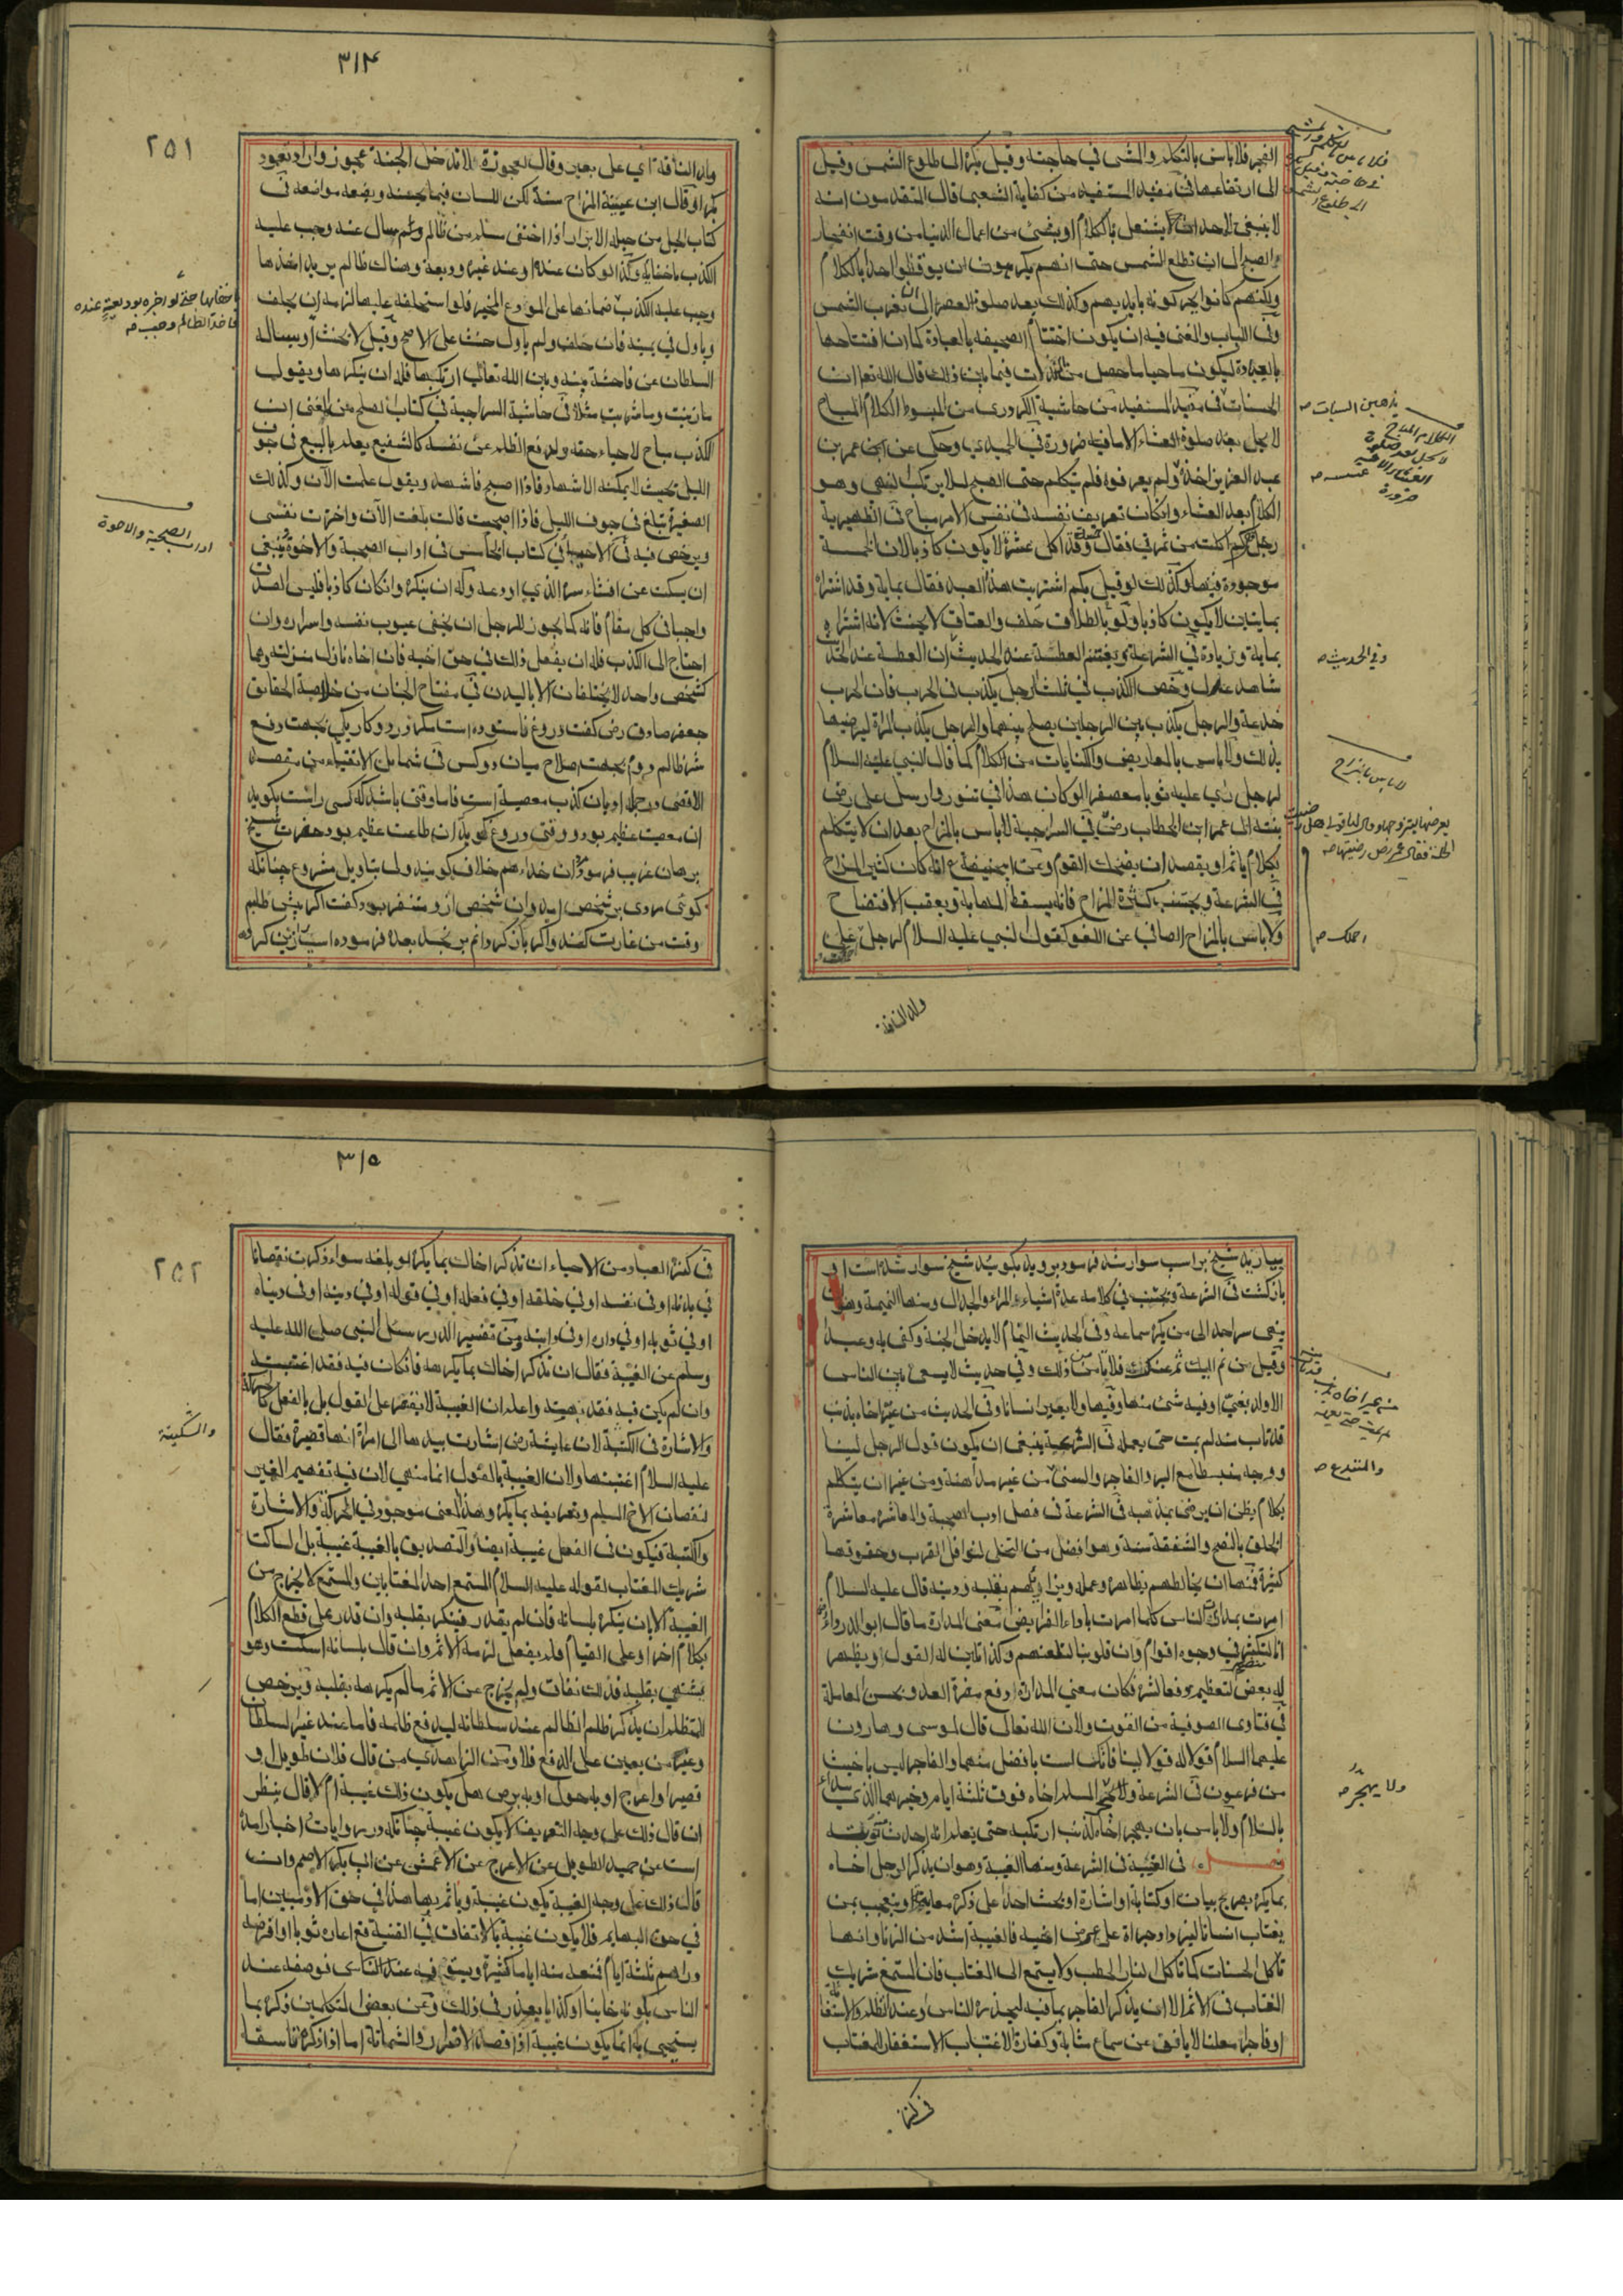 ٣١٤
الفجر فلا باس بالتكلم والمشي في حاجته وقيل يكره الى طلوع الشمس وقيل
الى ارتفاعها في مفيد المستفيد من كفاية الشعبي قال المتقدمون انه
لا ينبغي لاحد ان يشتغل بالكلام او بشئ من اعمال الدنيا من وقت انفجار
الصبح الى ان تطلع الشمس حتى انهم يكرهون ان يوقظوا احدا بالكلام
ولكنهم كانوا يحركونه بايديهم وكذلك بعد صلوة العصر الى ان يغرب الشمس
وفي اللباب والمعنى فيه ان يكون اختتام الصحيفه بالعبادة كما ان افتتاحها
بالعبادة ليكون ماحيا ما حصل من فيما بين ذلك قال الله تعا ان
الحسنات في مفيد المستفيد من حاشية من المبسوط الكلام المباح
لا يحل بعد صلوة العشاء الا ما فيه ضرورة في الحميدي وحكى عن ابن عمر بن
عبد العزيز اخذه ولم يعرفوه فلم يتكلم حتى اصبح لئلا يرتكب النهي وهو
الكلام بعد العشاء وان كان تعريف نفسه في نفس الامر مباح في الظهيرية
رجل كم اكلت من تمرتي فقال وقد اكل عشرة لا يكون كاذبا لان الخمسة
موجودة فيها وكذلك لو قيل بكم اشتريت هذا العبد فقال بماية وقد اشتراه
بمايتين لا يكون كاذبا ولو بالطلاق حلف والعتاق لا يحنث لانه اشتراه
بماية وزيادة في الشرعة ويغتنم العطسة عند الحديث ان العطسة عند الحديث
شاهد عدل ورخص الكذب في ثلث رجل يكذب في الحرب فان الحرب
خدعة والرجل يكذب بين الرجلين يصلح بينهما والرجل يكذب المراة ليرضيها
بذلك ولا باس بالمعاريض والكنايات من الكلام كما قال النبي عليه السلام
لرجل راي عليه ثوبا معصفرا لو كان هذا في تنور وارسل علي رض
بنته الى عمر ابن الخطاب رض في السراجية لا باس بالمزاح بعد ان لا يتكلم
بكلام ياثم او يقصد ان يضحك القوم وعن ابي حنيفة رح انه كان كثير المزاح
في الشرعة ويجتنب كثرة المزاح فانه يسقط المهابة ويعقب الافتضاح
ولا باس بالمزاح الصافي عن اللغو كقول النبي عليه السلام لرجل على
ولد الناقة
يذهبن السيات صح
وفي الحديث صح
لا باس بالمزاح
احملك صح
٢٥١
ولد الناقة اي على بعير وقال لعجوزة لا تدخل الجنة عجوز واراد تعود
بكرا وقال ابن عيينة المزاح سنة لكن اللسان فيما يحسنه ويضعه مواضعه في
كتاب الحيل من حيلة الابرار اذا اختفى مسلم من ظالم وثم سال عنه وجب عليه
الكذب باخفايه وكذا لو كان عنده او عند غيره وديعة وهناك ظالم يريد اخذها
وجب عليه الكذب ضمانها على المودع المخبر فلو استحلفه عليها لزمه ان يحلف
وياول في يمينه فان حلف ولم ياول حنث على الاصح وقيل لا يحنث او يساله
السلطان عن فاحشة بينه وبين الله تعالى ارتكبها فله ان ينكرها ويقول
ما زنيت وما شربت مثلا في حاشية السراجية في كتاب الصلح عن المغني ان
الكذب مباح لاحياء حقه ولدفع الظلم عن نفسه كالشفيع يعلم بالبيع في جوف
الليل بحيث لا يمكنه الاشهاد فاذا اصبح فاشهد ويقول علمت الآن وكذلك
الصغيرة تبلغ في جوف الليل فاذا اصبحت قالت بلغت الآن واخترت نفسي
ويرخص فيه في الاحياء في كتاب الخامس في اداب الصحبة والاخوة ينبغي
ان يسكت عن افشاء سره الذي اودعه وله ان ينكره وان كان كاذبا فليس الصدق
واجبا في كل مقام فانه كما يجوز للرجل ان يخفي عيوب نفسه واسراره وان
احتاج الى الكذب فله ان يفعل ذلك في حق اخيه فان اخاه نازل منزلته وهما
كشخص واحد لا يختلفان الا باليدن في مفتاح الجنان من خلاصة الحقايق
جعفر صادق رض كفت دروغ ناستوده است مكر در دو كار يكي بجهت دفع
شر ظالم دوم بجهت صلاح ميان دو كس في شمايل الاتقياء من مقصد
الاقصى هرچه او بان كذب معصية است فاما وقتي باشد كه كسي راست بكويد
ان معصية عظيم بود و وقتي دروغ كويد ان طاعت عظيم بود حضرت شيخ
برهان غريب فرمود ان خداء هم خلاف كويند ولى بتاويل مشروع چنانكه
كوئي مردي بر شخص ايد وان شخص ازو متنفر بود كفت اكر پيش طلبم
وقت من غارت كند واكر باز كردانم برنجد بعده فرموده اسپ زين كرده
اداب الصحبة والاخوة
٣١٥
بياريد شيخ بر اسپ سوار شد فرمود برويد بكوييد شيخ سوار شده است او
بازكشت في الشرعة ويجتنب في كلامه عدة اشياء المراء والجدال ومنها النميمة وهو ان
ينهي سر احد الى من يكره سماعه وفي الحديث النمام لا يدخل الجنة وكفى به وعيدا
وقيل من نم اليك نم عنك فلا تامن من ذلك وفي حديث لا يسعى بين الناس
الا ولد بغي او فيه شئ منها وفيها ولا يعير انسانا وفي الحديث من عير اخاه بذنب
قد تاب منه لم يمت حتى يعمله في الشرعة ينبغي ان يكون قول الرجل لينا
ووجهه منبسطا مع البر والفاجر والسني من غير مداهنة ومن غير ان يتكلم
بكلام يظن ان يرضى بمذهبه في الشرعة في فصل اداب الصحبة والمعاشرة معاشرة
الخلق بالنصح والشفقة سنة وهو افضل من التخلي لنوافل القرب وحقوقها
كثيرة فمنها ان يخالطهم بظاهره وعمله ويزايلهم بقلبه ودينه قال عليه السلام
امرت بمداراة الناس كما امرت باداء الفرايض معنى المدارة ما قال ابو الدرداء رض
انا لنكشر في وجوه اقوام وان قلوبنا لتلعنهم وكذا تليين له القول او يظهر
له بعض التعظيم دفعا لشره فكان معنى المداراة دفع مضرة العدو بحسن المعاملة
في فتاوى الصوفية من القوت ولان الله تعالى قال لموسى وهارون
عليهما السلام فقولا له قولا لينا فانك لست بافضل منهما والفاجر ليس باخبث
من فرعون في الشرعة المسلم اخاه فوق ثلثة ايام وخيرهما الذي يبداء
بالسلام ولا باس بان يهجر اخاه لذنب ارتكبه حتى يعلم انه احدث توبته
فصل في الغيبة في الشرعة ومنها الغيبة وهو ان يذكر الرجل اخاه
بما يكره بصريح بيان او كتابة او اشارة او يحث احدا على ذكر معايبه او يتعجب بمن
يغتاب انسانا ليزداد جراة على عرض اخيه فالغيبة اشد من الزنا وانها
تاكل الحسنات كما تاكل النار الحطب ولا يستمع الى المغتاب فان المستمع شريك
المغتاب في الاثم الا ان يذكر الفاجر بما فيه ليحذره الناس وعند التظلم والاستفتاء
او فاجرا معلنا لا يانف عن سماع مثالبه وكفارة الاغتياب الاستغفار للمغتاب
في كنز
والمبتدع صح
ولا يهجر صح
٢٥٢
في كنز العباد من الاحياء ان تذكر اخاك بما يكره لو بلغه سواء ذكرت نقصانا
في بدنه او في نفسه او في خلقه او في فعله او في قوله او في دينه او في دنياه
او في ثوبه او في داره او في دابته وفي تفسير الدرر سئل النبي صلى الله عليه
وسلم عن الغيبة فقال ان تذكر اخاك بما يكرهه فان كان فيه فقد اغتبته
وان لم يكن فيه فقد بهته واعلم ان الغيبة لا يقتصر على القول بل بالفعل كالحركة
والاشارة في الكتبة لان عايشة رض اشارت بيدها الى امراة انها قصيرة فقال
عليه السلام اغتبتها ولان الغيبة بالقول انما منهي لان فيه تفهيم الغير
لنقصان الاخ المسلم وتعريفه بما يكره وهذا المعنى موجود في الحركة والاشارة
والكتبة فيكون في الفعل غيبة ايضا والتصديق بالغيبة غيبة بل الساكت
شريك المغتاب لقوله عليه السلام المستمع احد المغتابين والمستمع لا يخرج من
الغيبة الا بان ينكره بلسانه فان لم يقدر فينكر بقلبه وان قدر على قطع الكلام
بكلام اخر او على القيام فلم يفعل لزمه الاثم وان قال بلسانه اسكت وهو
يشتهي بقلبه فذلك نفاق ولم يخرج عن الاثم ما لم يكرهه بقلبه ويرخص
للمتظلم ان يذكر ظلم الظالم عند سلطانه ليدفع ظلمه فاما عند غير السلطان
وغير من يعين على الدفع فلا ومن الزاهدي من قال فلان طويل او
قصير او اعرج او به حول او به برص هل يكون ذلك غيبة ام لا قال ينظر
ان قال ذلك على وجه التعريف لا يكون غيبة چنانكه در روايات اخبار امده
است عن حميد الطويل عن الاعرج عن الاعمش عن ابي بكر الاصم وان
قال ذلك على وجه الغيبة يكون غيبة وياثم بها هذا في حق الادميين اما
في حق البهايم فلا يكون غيبة بالاتفاق في القنية قع اعاره ثوبا او اقرضه
دراهم ثلثة ايام فمنعه منه اياما كثيرة ويسوف فيه عند الناس فوصفه عند
الناس بكونه خاينا او كذابا يعذر في ذلك وعن بعض المتكلمين ذكره بما
يستحيي به انما يكون غيبة اذا قصد الاضرار والشماتة اما اذا ذكره تاسفا
والسكينة